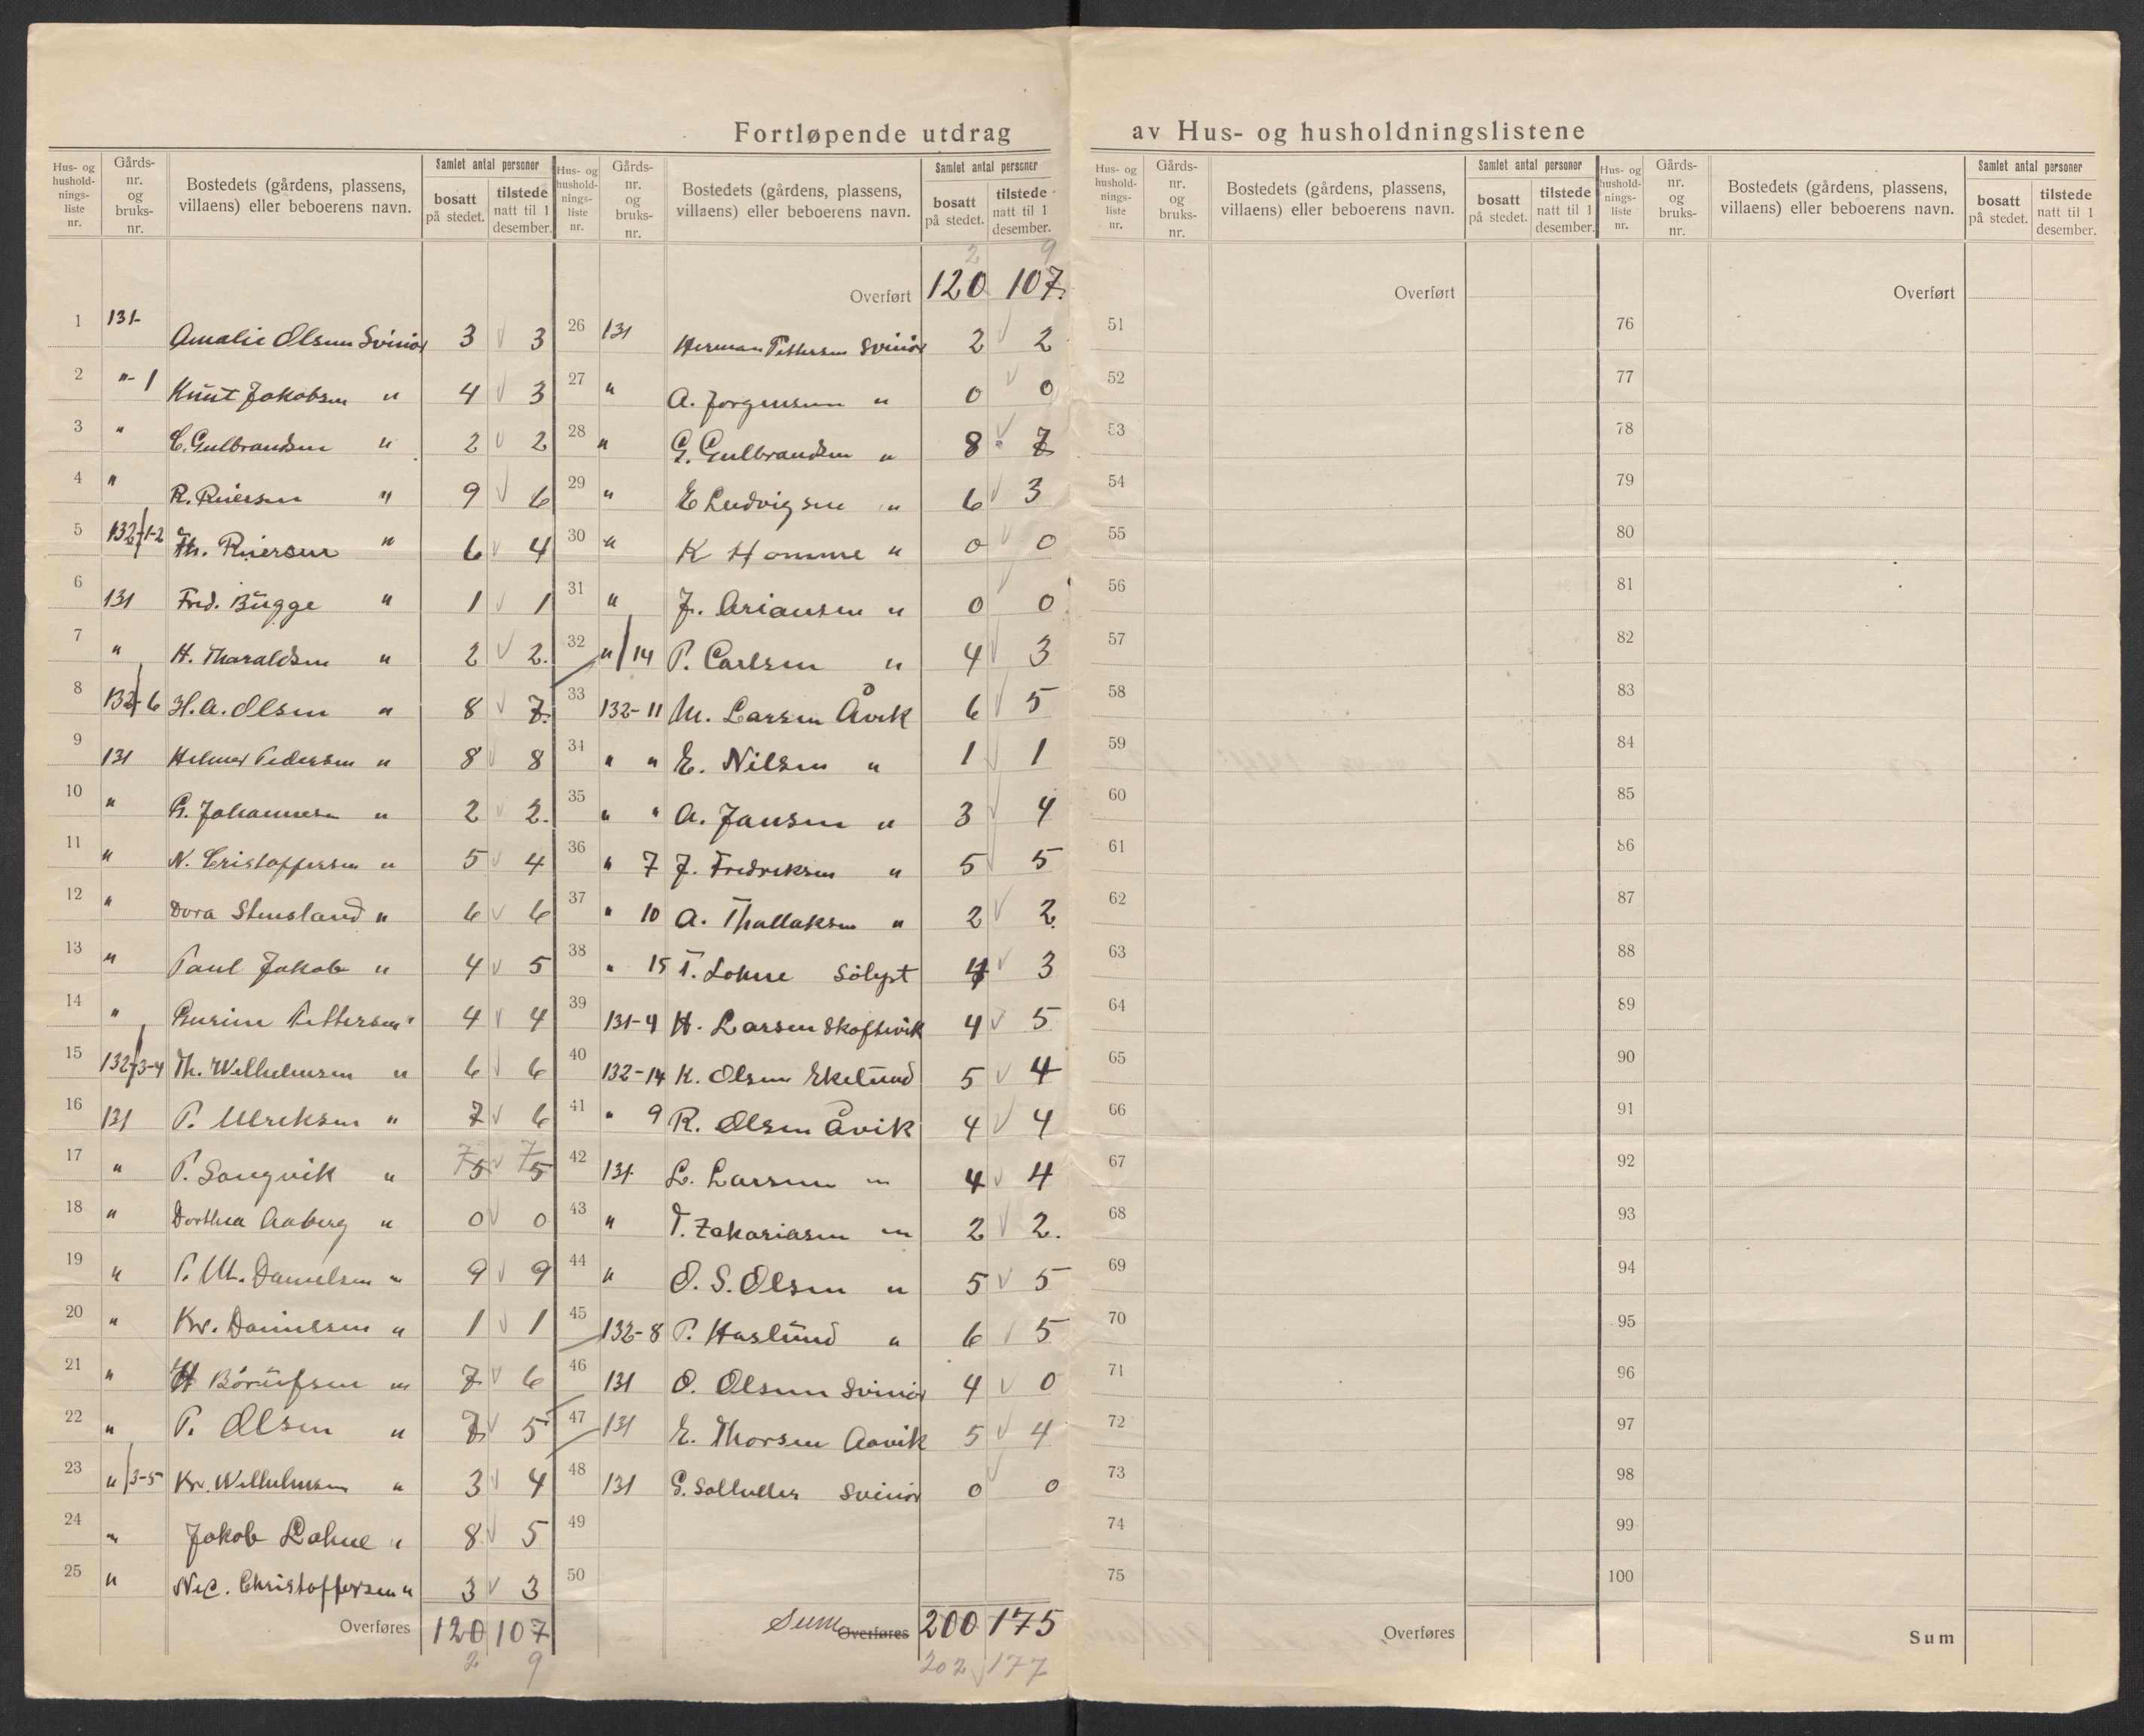 Fortløpende utdrag av Hus- og husholdningslistene
Hus- og hushold-nings-liste nr. | Gårds-nr. og bruks-nr. | Bostedets (gårdens, plassens, villaens) eller beboerens navn. | Samlet antal personer | bosatt på stedet. | tilstede natt til 1 desember.
1 131- Amalie Olsen Svinør 3 v 3
2 "-1 Knut Jakobsen " 4 v 3
3 " C. Gulbrandsen " 2 v 2
4 " R. Reiersen " 9 v 6
5 132/1-2 Th. Reiersen " 6 v 4
6 131 Fred. Bugge " 1 v 1
7 " H. Tharaldsen " 2 v 2.
8 132/6 H.A. Olsen " 8 v 7.
9 131 Helmer Pedersen " 8 v 8
10 " G. Johannesen " 2 v 2.
11 " N. Cristoffersen " 5 v 4
12 " Dora Stensland " 6 v 6
13 " Paul Jakob " 4 v 5
14 " Gurine Pettersen " 4 v 4
15 132/3-4 Th. Wilhelmsen " 6 v 6
16 131 P. Ulriksen " 7 v 6
17 " P. Sangvik " 7 5 v 7 5
18 " Dorthea Aaberg " 0 v 0
19 " P. M. Danielsen " 9 v 9
20 " Kr. Danielsen " 1 v 1
21 " H Börufsen " 7 v 6
22 " P. Olsen " 7 v 5
23 "/3-5 Kr. Wilhelmsen " 3 v 4
24 " Jakob Lohne " 8 v 5
25 " Nic. Christoffersen " 3 v 3
Overføres 120 107
2 9
Hus- og hushold-nings-liste nr. | Gårds-nr. og bruks-nr. | Bostedets (gårdens, plassens, villaens) eller beboerens navn. | Samlet antal personer | bosatt på stedet. | tilstede natt til 1 desember.
2 9
Overført 120 107
26 131 Herman Pettersen Svinør 2 v 2
27 " A. Jørgensen " 0 v 0
28 " G. Gulbrandsen " 8 v 7
29 " E Ludvigsen " 6 v 3
30 " K Homme " 0 v 0
31 " J. Ariansen " 0 v 0
32 "/14 P. Carlsen " 4 v 3
33 132-11 M. Larsen Åvik 6 v 5
34 " " E. Nilsen " 1 v 1
35 " " A. Jansen " 3 v 4
36 " 7 J. Fredriksen " 5 v 5
37 " 10 A. Thallaksen " 2 v 2
38 " 15 T. Lohne Sölyst 4 v 3
39 131-4 H. Larsen Skoftevik 4 v 5
40 132-14 K. Olsen Ekelund 5 v 4
41 " 9 R. Olsen Åvik 4 v 4
42 131 L. Larsen " 4 v 4
43 " T. Zakariasen " 2 v 2.
44 " O. S. Olsen " 5 v 5
45 132-8 P. Haslund " 6 v 5
46 131 O. Olsen Svinør 4 v 0
47 131 E. Thorsen Aavik 5 v 4
48 131 Svinør 0 v 0
49
50
Sum Overføres 200 175
202 v 177
Hus- og hushold-nings-liste nr. | Gårds-nr. og bruks-nr. | Bostedets (gårdens, plassens, villaens) eller beboerens navn. | Samlet antal personer | bosatt på stedet. | tilstede natt til 1 desember.
Overført
51
52
53
54
55
56
57
58
59
60
61
62
63
64
65
66
67
68
69
70
71
72
73
74
75
Overføres
Hus- og hushold-nings-liste nr. | Gårds-nr. og bruks-nr. | Bostedets (gårdens, plassens, villaens) eller beboerens navn. | Samlet antal personer | bosatt på stedet. | tilstede natt til 1 desember.
Overført
76
77
78
79
80
81
82
83
84
85
86
87
88
89
90
91
92
93
94
95
96
97
98
99
100
Sum